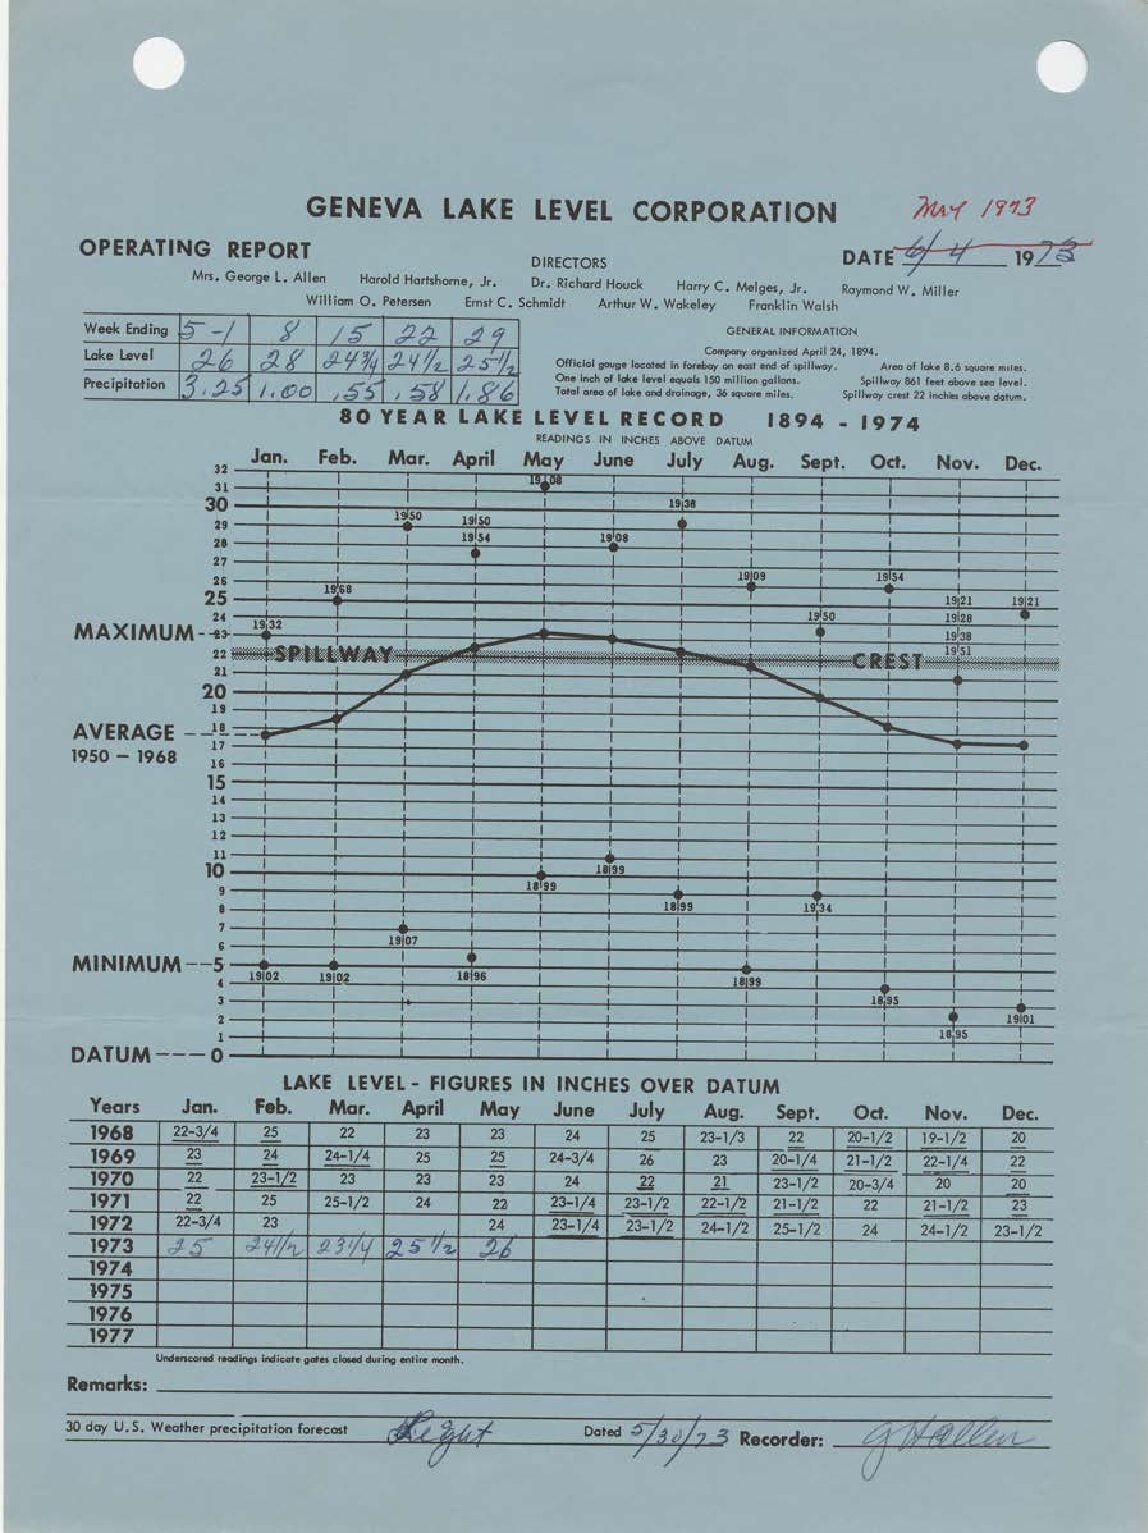 GENEVA LAKE LEVEL CORPORATION May 1973
OPERATING REPORT
DIRECTORS
DATE 6/4 1973
Mrs. George L. Allen Harold Hartshorne, Jr. Dr. Richard Houck Harry C. Melges, Jr. Raymond W. Miller
William O. Petersen Ernst C. Schmidt Arthur W. Wakeley Franklin Walsh
Week Ending 5-1 8 15 22 29
Lake Level 26 28 24 3/4 24 1/2 25 1/2
Precipitation 3.25 1.00 .55 .58 1.86
GENERAL INFORMATION
Company organized April 24, 1894.
Official gauge located in forebay on east end of spillway. Area of lake 8.6 square miles.
One inch of lake level equals 150 million gallons. Spillway 861 feet above sea level.
Total area of lake and drainage, 36 square miles. Spillway crest 22 inches above datum.
80 YEAR LAKE LEVEL RECORD 1894 - 1974
READINGS IN INCHES ABOVE DATUM
Jan. Feb. Mar. April May June July Aug. Sept. Oct. Nov. Dec.
32
31 1908
30 1938
29 1950 1950
28 1954 1908
27
26 1909 1954
25 1968 1921 1921
24 1932 1950 1928
MAXIMUM 23 1938
22 SPILLWAY CREST 1951
21
20
19
AVERAGE 18
1950 - 1968 17
16
15
14
13
12
11
10 1899
9 1899
8 1899 1934
7
6 1907
MINIMUM 5
4 1902 1902 1896 1899
3 1895
2 1901
1 1895
DATUM 0
LAKE LEVEL - FIGURES IN INCHES OVER DATUM
Years Jan. Feb. Mar. April May June July Aug. Sept. Oct. Nov. Dec.
1968 22-3/4 25 22 23 23 24 25 23-1/3 22 20-1/2 19-1/2 20
1969 23 24 24-1/4 25 25 24-3/4 26 23 20-1/4 21-1/2 22-1/4 22
1970 22 23-1/2 23 23 23 24 22 21 23-1/2 20-3/4 20 20
1971 22 25 25-1/2 24 22 23-1/4 23-1/2 22-1/2 21-1/2 22 21-1/2 23
1972 22-3/4 23 24 23-1/4 23-1/2 24-1/2 25-1/2 24 24-1/2 23-1/2
1973 25 24 1/2 23 1/4 25 1/2 26
1974
1975
1976
1977
Underscored readings indicate gates closed during entire month.
Remarks:
30 day U.S. Weather precipitation forecast Light Dated 5/30/73 Recorder: G Hallen